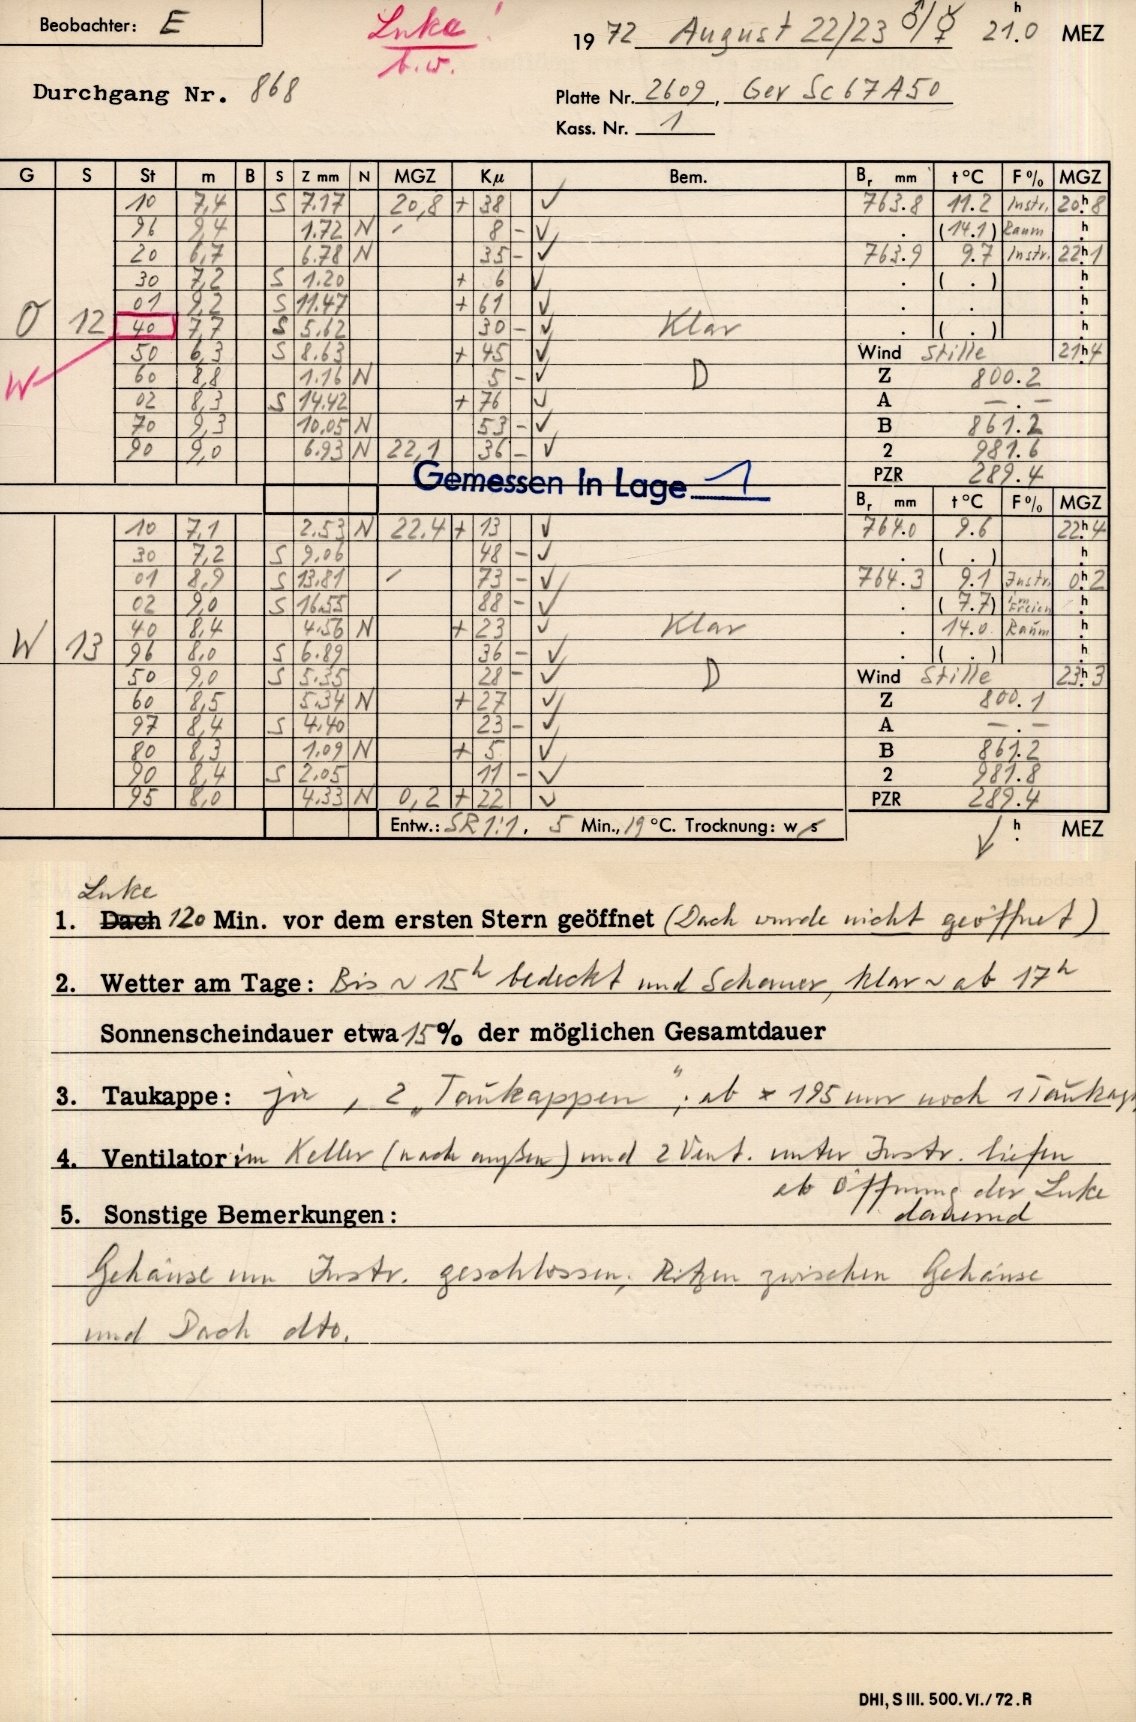 Beobachter: E
Luke!
b.w.
1972 August 22/23 ♂/☿ 21.0 h MEZ
Durchgang Nr. 868
Platte Nr. 2609, Gev Sc67A50
Kass. Nr. 1
G S St m B S Z mm N MGZ Kµ Bem. Br mm t°C F% MGZ
10 7,4 S 7.17 20,8 + 38 ✓ 763.8 11.2 Instr. 20h8
96 9,4 1.72 N ✓ 8 - ✓ . (14.1) Raum h
20 6,7 6.78 N 35 - ✓ 763.9 9.7 Instr. 22h1
30 7,2 S 1.20 + 6 ✓ . ( . ) h
01 9,2 S 11.47 + 61 ✓ . . h
O 12 40 7,7 S 5.62 30 - ✓ Klar . ( . ) h
50 6,3 S 8.63 + 45 ✓ Wind Stille 21h4
W 60 8,8 1.16 N 5 - ✓ D Z 800.2
02 8,3 S 14.42 + 76 ✓ A — . —
70 9,3 10.05 N 53 - ✓ B 861.2
90 9,0 6.93 N 22,1 36 - ✓ 2 981.6
Gemessen in Lage 1 PZR 289.4
Br mm t°C F% MGZ
10 7,1 2.53 N 22.4 + 13 ✓ 764.0 9.6 22h4
30 7,2 S 9.06 48 - ✓ . ( . ) h
01 8,9 S 13.81 ✓ 73 - ✓ 764.3 9.1 Instr. 0h2
02 9,0 S 16.55 88 - ✓ . (7.7) im Freien h
40 8,4 4.56 N + 23 ✓ Klar . 14.0 Raum h
W 13 96 8,0 S 6.89 36 - ✓ . ( . ) h
50 9,0 S 5.35 28 - ✓ D Wind Stille 23h3
60 8,5 5.34 N + 27 ✓ Z 800.1
97 8,4 S 4.40 23 - ✓ A — . —
80 8,3 1.09 N + 5 ✓ B 861.2
90 8,4 S 2.05 11 - ✓ 2 981.8
95 8,0 4.33 N 0,2 + 22 ✓ PZR 289.4
Entw.: SR 1:1, 5 Min., 19 °C. Trocknung: w s h MEZ
Luke
1. Dach 120 Min. vor dem ersten Stern geöffnet (Dach wurde nicht geöffnet)
2. Wetter am Tage: Bis ~ 15h bedeckt und Schauer, klar ~ ab 17h
Sonnenscheindauer etwa 15% der möglichen Gesamtdauer
3. Taukappe: ja, 2 „Taukappen"; ab * 195 nur noch 1
4. Ventilator im Keller (nach außen) und 2 Vent. unter Instr. liefen
ab Öffnung der Luke
5. Sonstige Bemerkungen: dauernd
Gehäuse um Instr. geschlossen; Ritzen zwischen Gehäuse
und Dach dto.
DHI, S III. 500. VI./72. R